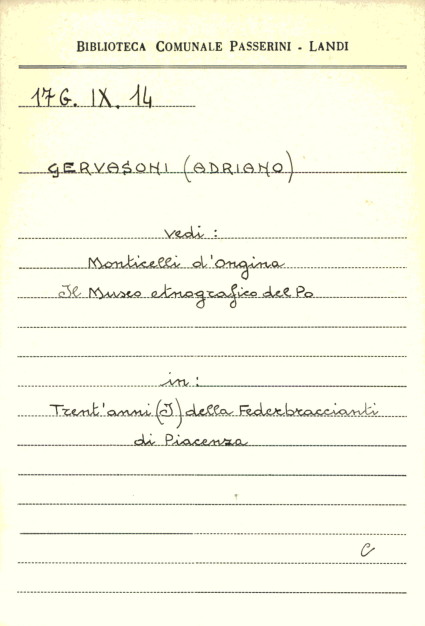 BIBLIOTECA COMUNALE PASSERINI - LANDI
17G. IX. 14
GERVASONI (ADRIANO)
vedi :
Monticelli d'Ongina
Il Museo etnografico del Po
in :
Trent'anni (I) della Federbraccianti
di Piacenza
C